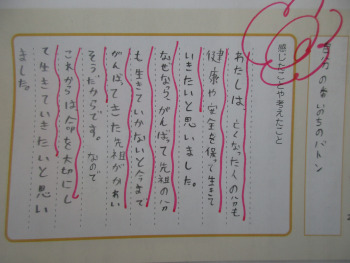 自分の番 いのちのバトン
感じたことや考えたこと
わたしは、亡くなった人の分も
健康や安全を保って生きて
いきたいと思いました。
なぜなら、がんばって先祖の分
も生きていかないと今まで
がんばってきた先祖がかわい
そうだからです。なので
これからは命を大切にし
て生きていきたいと思い
ました。